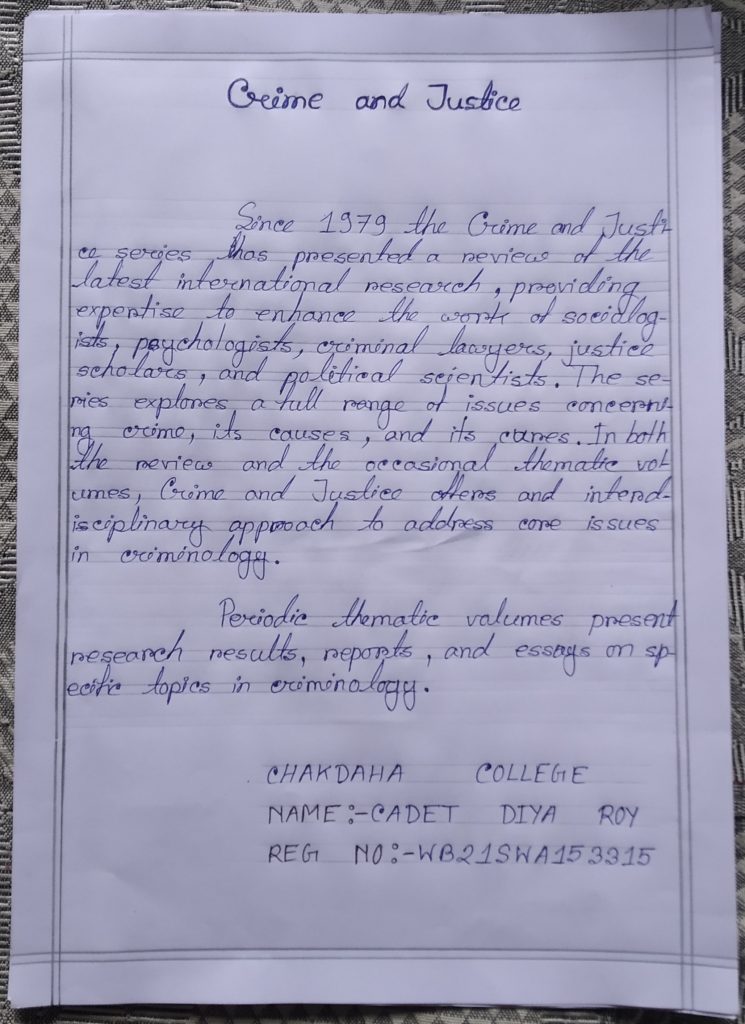 Crime and Justice
Since 1979 the Crime and Justi-
ce series has presented a review of the
latest international research, providing
expertise to enhance the work of sociolog-
ists, psychologists, criminal lawyers, justice
scholars, and political scientists. The se-
ries explores a full range of issues concerni-
ng crime, its causes, and its cures. In both
the review and the occasional thematic vol-
umes, Crime and Justice offers and interd-
isciplinary approach to address core issues
in criminology.
Periodic thematic volumes present
research results, reports, and essays on sp-
ecific topics in criminology.
CHAKDAHA COLLEGE
NAME:-CADET DIYA ROY
REG NO:-WB21SWA153315